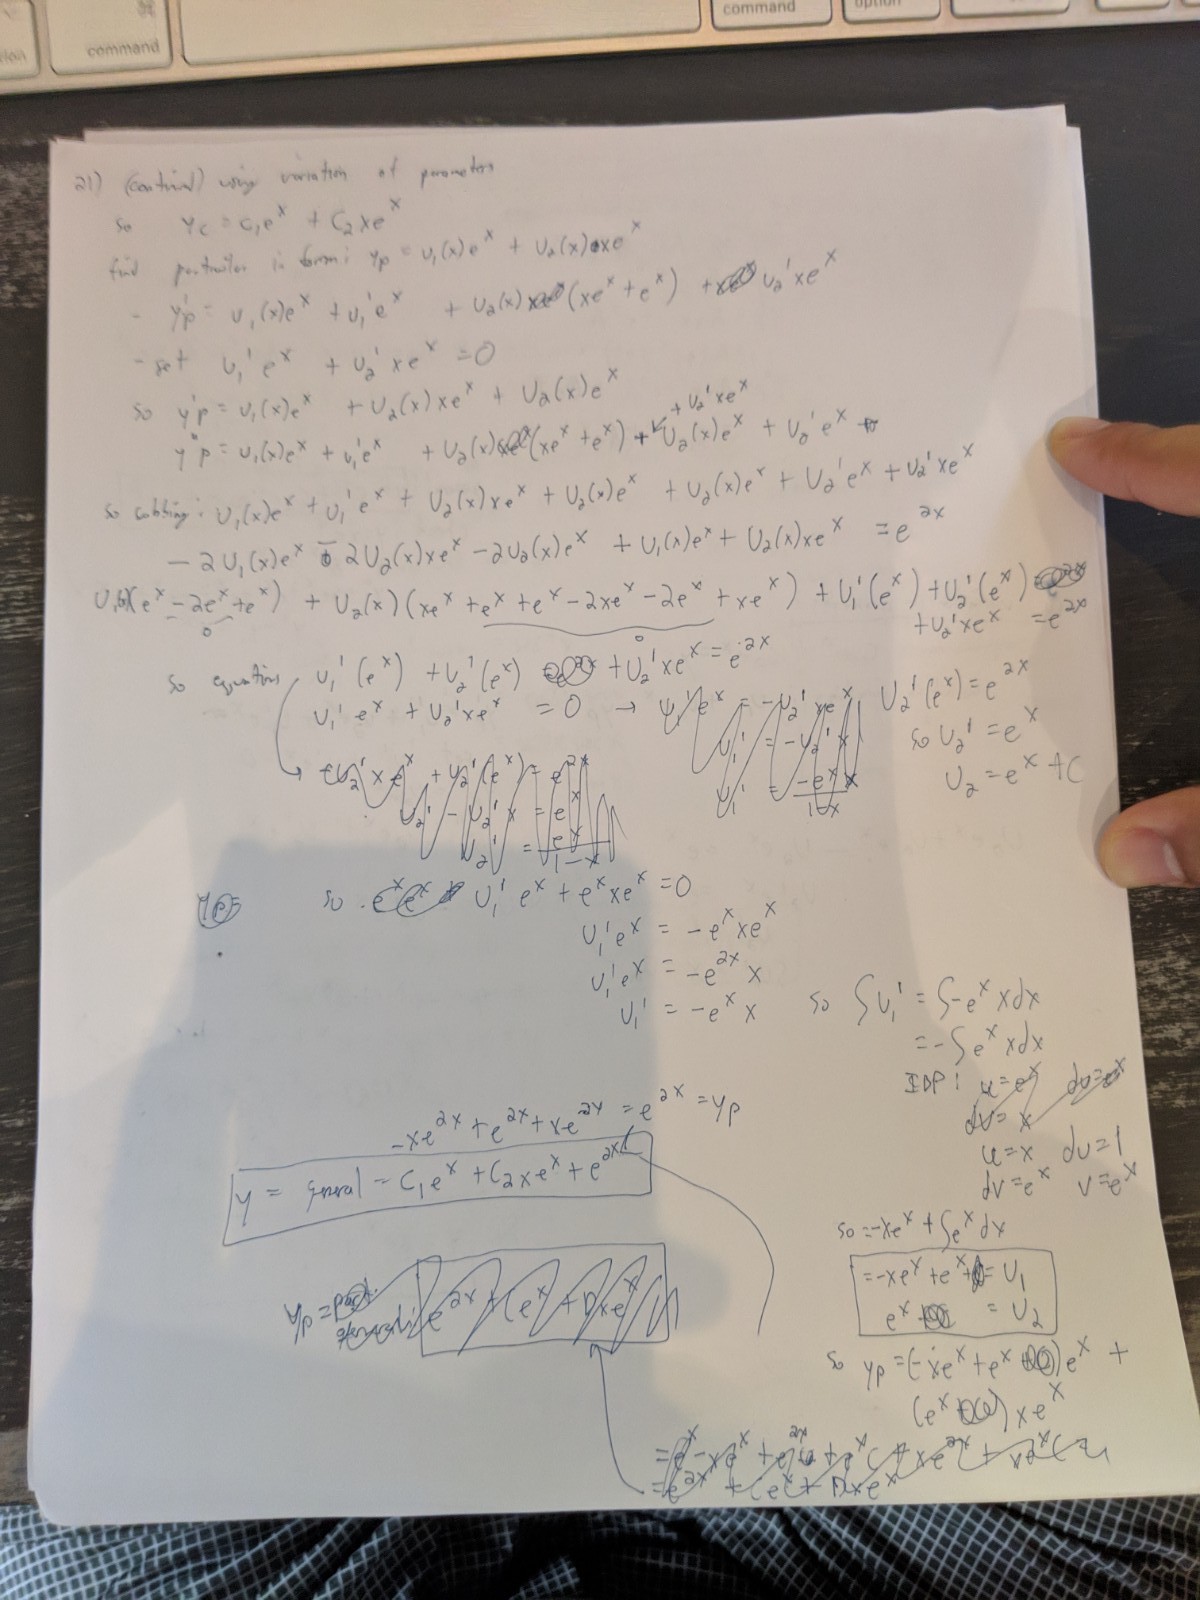 command
command
option
21) (continued) using variation of parameters
so yc = c₁eˣ + C₂xeˣ
find particular in form: yp = u₁(x)eˣ + U₂(x)xeˣ
- y'p = u₁(x)eˣ + u₁'eˣ + U₂(x)(xeˣ + eˣ) + U₂'xeˣ
- set U₁'eˣ + U₂'xeˣ = 0
so y'p = u₁(x)eˣ + U₂(x)xeˣ + U₂(x)eˣ
+ U₂'xeˣ
y''p = u₁(x)eˣ + u₁'eˣ + U₂(x)(xeˣ + eˣ) + U₂(x)eˣ + U₂'eˣ
so subbing: U₁(x)eˣ + U₁'eˣ + U₂(x)xeˣ + U₂(x)eˣ + U₂(x)eˣ + U₂'eˣ + U₂'xeˣ
- 2U₁(x)eˣ - 2U₂(x)xeˣ - 2U₂(x)eˣ + U₁(x)eˣ + U₂(x)xeˣ = e²ˣ
U₁(x)(eˣ - 2eˣ + eˣ) + U₂(x)(xeˣ + eˣ + eˣ - 2xeˣ - 2eˣ + xeˣ) + U₁'(eˣ) + U₂'(eˣ)
0 0 + U₂'xeˣ = e²ˣ
so equations U₁'(eˣ) + U₂'(eˣ) + U₂'xeˣ = e²ˣ
U₁'eˣ + U₂'xeˣ = 0 → U₁'eˣ = -U₂'xeˣ
U₁' = -U₂'x
U₁' = -eˣx / 1-x
U₂'(eˣ) = e²ˣ
so U₂' = eˣ
U₂ = eˣ + C
-U₂'xeˣ + U₂'(eˣ) = e²ˣ
U₂' - U₂'x = eˣ
U₂' = eˣ / 1-x
yp=
so U₁'eˣ + eˣxeˣ = 0
U₁'eˣ = -eˣxeˣ
U₁'eˣ = -e²ˣx
U₁' = -eˣx
so ∫U₁' = ∫-eˣxdx
= -∫eˣxdx
IBP: u = eˣ du = eˣ
dv = x
u = x du = 1
dv = eˣ v = eˣ
so = -xeˣ + ∫eˣdx
= -xeˣ + eˣ = U₁
eˣ = U₂
so yp = (-xeˣ + eˣ)eˣ +
(eˣ)xeˣ
-xe²ˣ + e²ˣ + xe²ˣ = e²ˣ = yp
y = general = C₁eˣ + C₂xeˣ + e²ˣ
yp = part.
e²ˣ + Ceˣ + Dxeˣ
= e²ˣ + Ceˣ + Dxeˣ